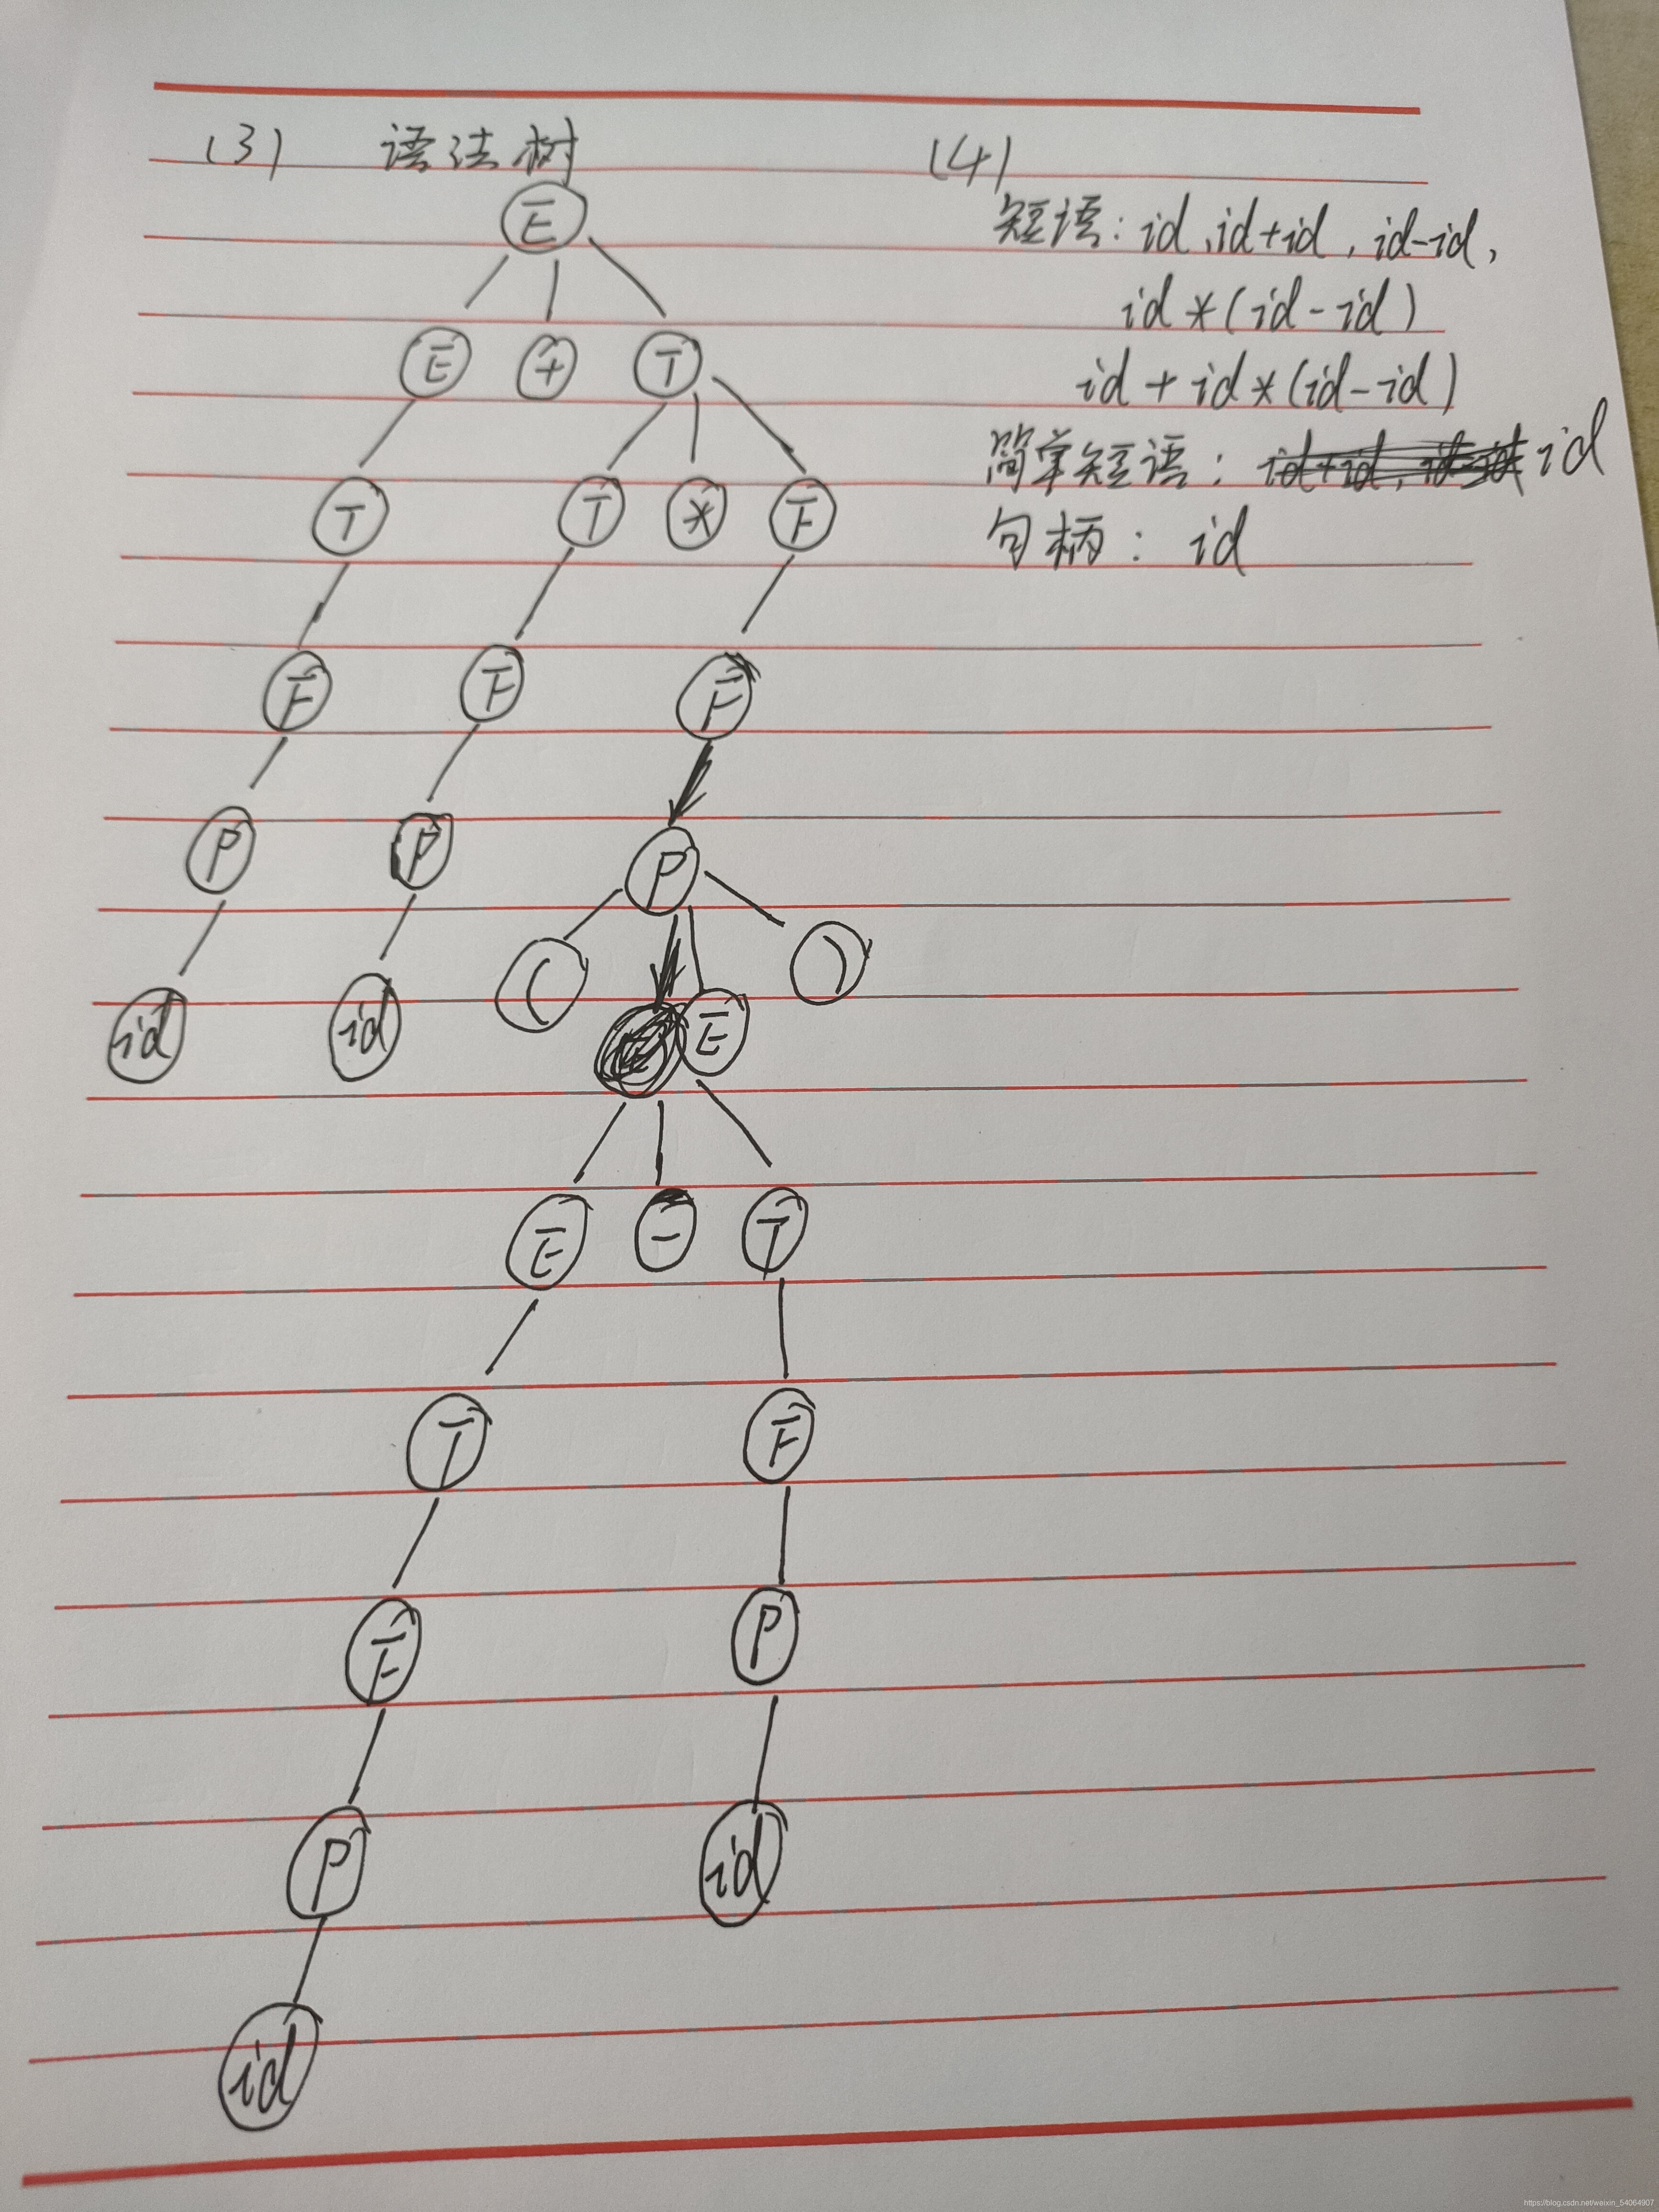 (3) 语法树
E
E + T
T T * F
F F F
P P P
( )
id id E
E - T
T F
F P
P id
id
(4)
短语: id, id+id, id-id,
id*(id-id)
id+id*(id-id)
简单短语: id
句柄: id
https://blog.csdn.net/weixin_54064907